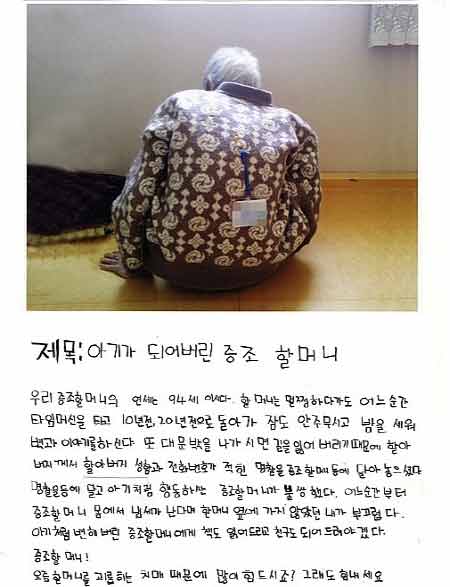 제목: 아기가 되어버린 증조 할머니
우리 증조할머니의 연세는 94세 이시다. 할머니는 멀쩡하다가도 어느순간
타임머신을 타고 10년전, 20년전으로 돌아가 잠도 안주무시고 밤을 세워
벽과 이야기를 하신다. 또 대문밖을 나가시면 길을 잃어 버리기때문에 할아
버지께서 할아버지 성함과 전화번호가 적힌 명찰을 증조할머니 등에 달아 놓으셨다
명찰을 등에 달고 아기처럼 행동하는 증조할머니가 불쌍했다. 어느순간부터
증조할머니 몸에서 냄새가 난다며 할머니 옆에 가지 않았던 내가 부끄럽다.
아기처럼 변해버린 증조할머니에게 책도 읽어드리고 친구도 되어드려야겠다.
증조할머니!
요즘할머니를 괴롭히는 치매 때문에 많이 힘드시죠? 그래도 힘내세요